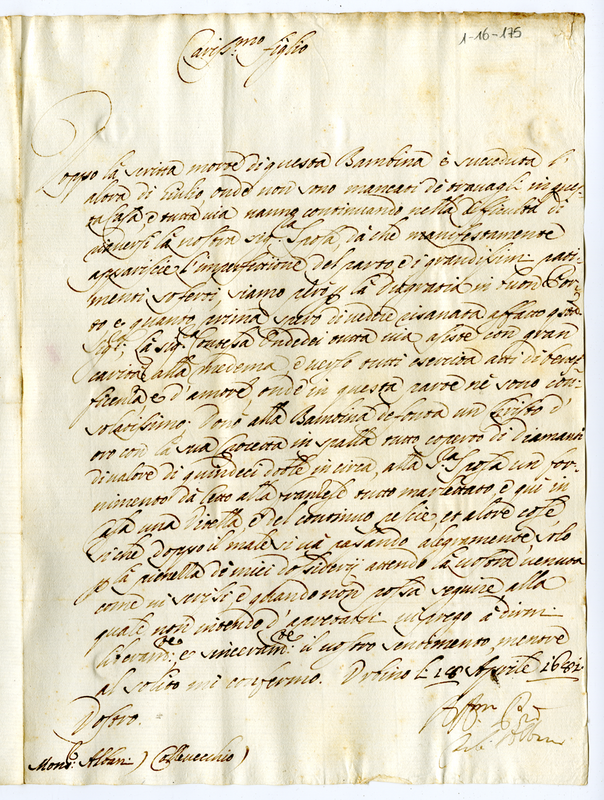 1-16-175
Cariss.mo figlio
Doppo la scritta morte di questa Bambina è succeduta l'
altra di Giulio, onde non sono mancati de travagli in ques-
ta Casa, e tutta via vanno continuando nella difficultà di
la nostra Sig.ra Sposa, da che manifestamente
apparisce l'imperfettione del parto, e i grandissimi pati-
menti soferti, siamo però p la Dio gratia in buon Por-
to e quanto prima spero di vedere risanata affatto qsta
Sig.ra; La Sig.ra Contessa tutta via assiste con gran
carità alla medema, e verso tutti esercita atti di bene-
ficenza e d'amore onde in questa parte ne sono con-
solatissimo; Donò alla Bambina defonta un Christo d'
oro con la sua Crocetta in spalla tutto coperto di Diamanti
di valore di quindeci doble in circa, alla S.ra Sposa un for-
nimento da letto alla franzese tutto merlettato e qui in
Casa una e del continuo et altre cose,
si che doppo il male si và passando alegramente solo
p la pienezza de miei desiderij attendo la vostra venuta
come vi scrissi e quando non possa seguire alla
quale non intendo d' vi prego à dirmi
liberam.te e sinceram.te il vostro sentimento, mentre
al solito mi confermo. Urbino li 18 Aprile 1681
Vostro.
Aff.mo P.re
Albani
Mons.r Albani) Collevecchio)